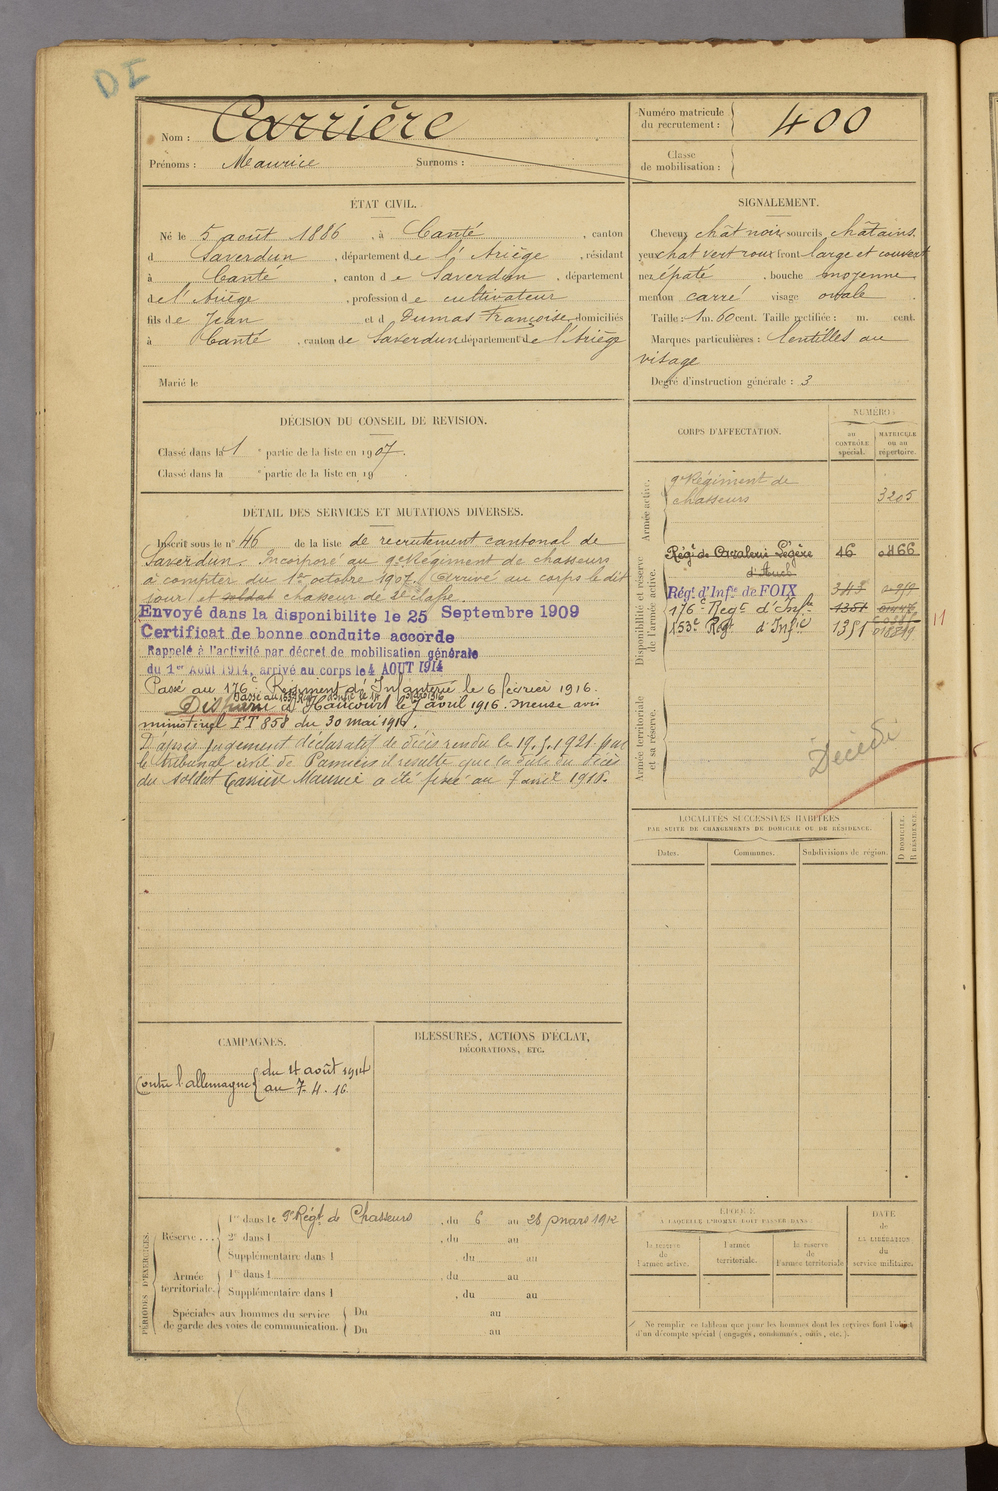 DI
Nom : Carrière
Prénoms : Maurice Surnoms :
Numéro matricule du recrutement : 400
Classe de mobilisation :
ÉTAT CIVIL.
Né le 5 août 1886, à Canté, canton
d Saverdun, département de l'Ariège, résidant
à Canté, canton de Saverdun, département
de l'Ariège, profession de cultivateur
fils de Jean et d Dumas Françoise, domiciliés
à Canté, canton de Saverdun département de l'Ariège
Marié le
SIGNALEMENT.
Cheveux chât noir sourcils châtains.
yeux chat vert roux front large et couvert
nez épaté, bouche moyenne
menton carré visage ovale
Taille : 1 m. 60 cent. Taille rectifiée : m. cent.
Marques particulières : lentilles au
visage
Degré d'instruction générale : 3
DÉCISION DU CONSEIL DE REVISION.
Classé dans la 1e partie de la liste en 1907.
Classé dans la e partie de la liste en 19
DÉTAIL DES SERVICES ET MUTATIONS DIVERSES.
Inscrit sous le n° 46 de la liste de recrutement cantonal de
Saverdun. Incorporé au 9e Régiment de chasseurs
à compter du 1er octobre 1907. Arrivé au corps le dit
jour et soldat chasseur de 2e classe.
Envoyé dans la disponibilite le 25 Septembre 1909
Certificat de bonne conduite accorde
Rappelé à l'activité par décret de mobilisation générale
du 1er Août 1914, arrivé au corps le 4 AOUT 1914
Passé au 176e Régiment d'Infanterie le 6 février 1916.
Passé au 153e Rég. d'Infie le
Disparu à Haucourt le 7 avril 1916. Meuse avis
ministériel FT 858 du 30 mai 1916.
D'après jugement déclaratif de décès rendu le 19.5.1921 par
le tribunal civil de Pamiers il résulte que la date du décès
du soldat Carrière Maurice a été fixé au 7 avril 1916.
CORPS D'AFFECTATION.
NUMÉRO :
au CONTRÔLE spécial.
MATRICULE ou au répertoire.
Armée active.
9e Régiment de
chasseurs 3205
Disponibilité et réserve de l'armée active.
Régt de Cavalerie Légère 46 0466
d'Auch
Rég.t d'Inf.ie de FOIX 343
176e Regt d'Infie 1351
153e Régt d'Infie 1351
11
Armée territoriale et sa réserve.
Décédé
LOCALITÉS SUCCESSIVES HABITÉES
PAR SUITE DE CHANGEMENTS DE DOMICILE OU DE RÉSIDENCE.
Dates. Communes. Subdivisions de région. D DOMICILE. R RÉSIDENCE.
CAMPAGNES.
Contre l'allemagne { du 4 août 1914
au 7. 4. 16
BLESSURES, ACTIONS D'ÉCLAT,
DÉCORATIONS, ETC.
PÉRIODES D'EXERCICES.
Réserve ... 1re dans le 9e Régt de Chasseurs, du 6 au 28 mars 1912
2e dans l , du au
Supplémentaire dans l du au
Armée territoriale. 1re dans l , du au
Supplémentaire dans l , du au
Spéciales aux hommes du service de garde des voies de communication. Du au
Du au
ÉPOQUE
À LAQUELLE L'HOMME DOIT PASSER DANS :
la réserve de l'armée active.
l'armée territoriale.
la réserve de l'armée territoriale
DATE de LA LIBÉRATION du service militaire.
Ne remplir ce tableau que pour les hommes dont les services font l'objet
d'un décompte spécial (engagés, condamnés, omis, etc.).